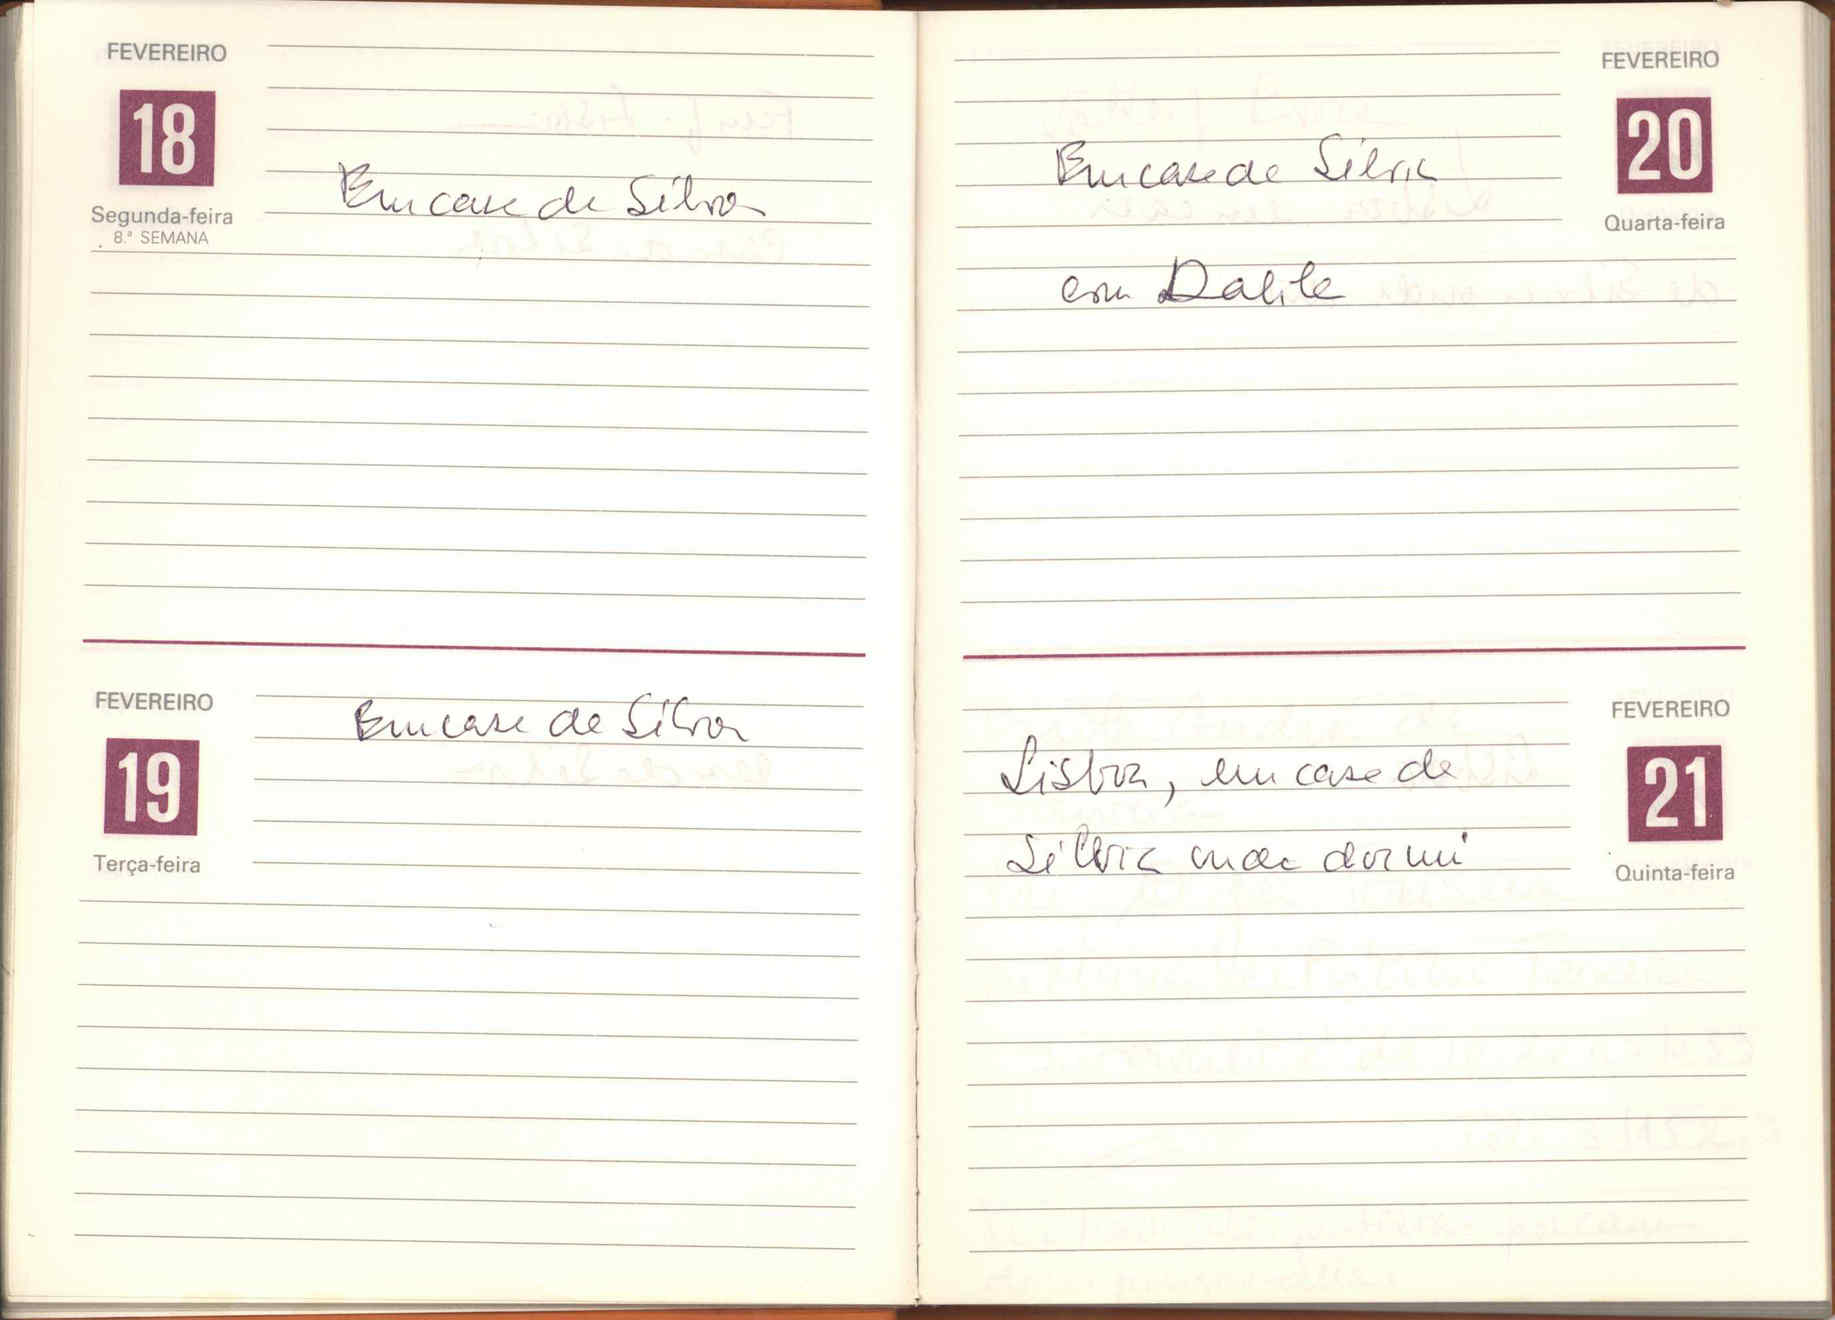 FEVEREIRO
18
Segunda-feira
8.ª SEMANA
Em casa de Sílvia
FEVEREIRO
19
Terça-feira
Em casa de Sílvia
FEVEREIRO
20
Quarta-feira
Em casa de Sílvia
com Dalila
FEVEREIRO
21
Quinta-feira
Lisboa, em casa de
Sílvia onde dormi